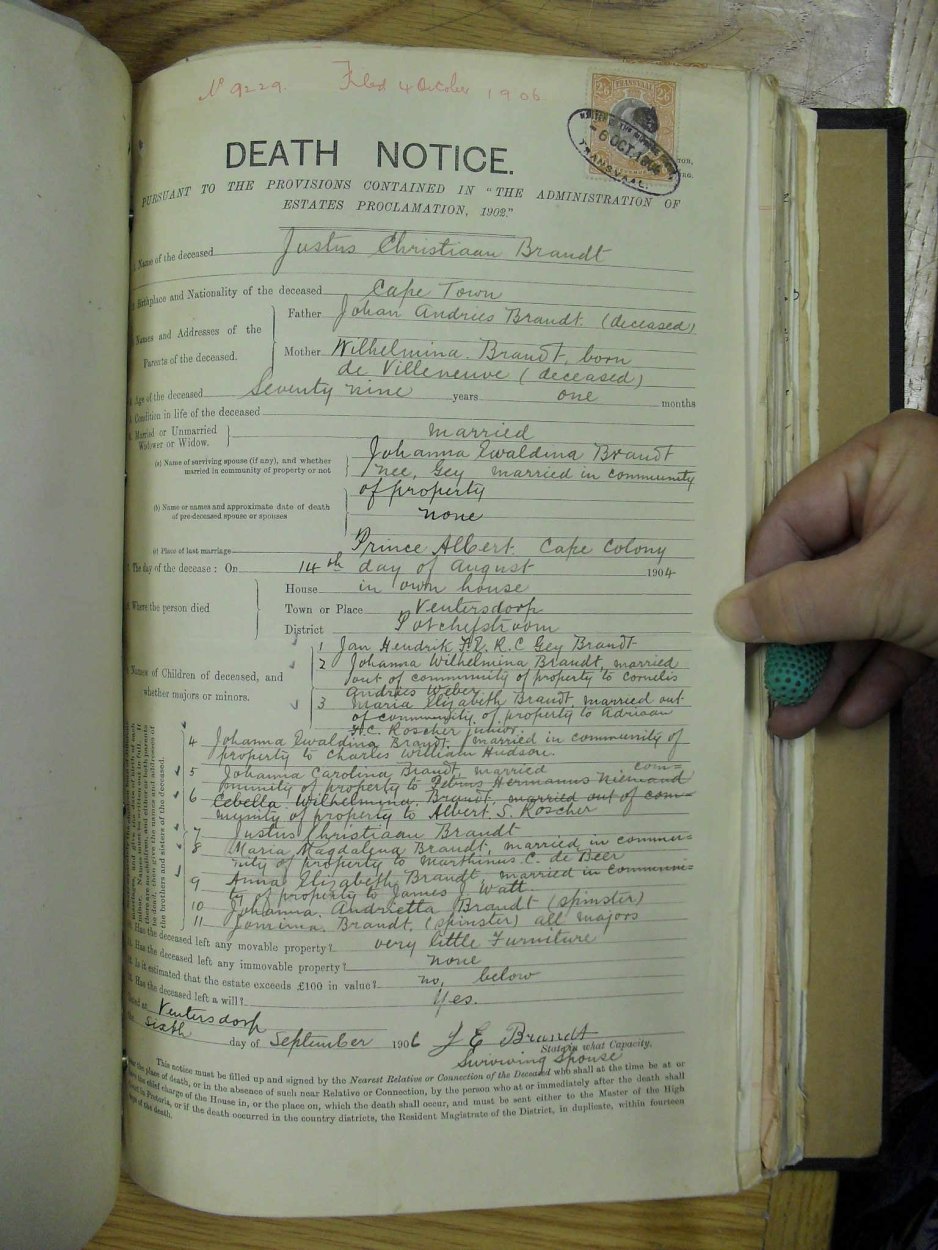 No 9229. Filed 4 October 1906
TRANSVAAL
2/6 2/6
6 OCT. 1906
TRANSVAAL.
DEATH NOTICE.
PURSUANT TO THE PROVISIONS CONTAINED IN "THE ADMINISTRATION OF
ESTATES PROCLAMATION, 1902."
Name of the deceased Justus Christiaan Brandt
Birthplace and Nationality of the deceased Cape Town
Names and Addresses of the Parents of the deceased.
Father Johan Andries Brandt (deceased)
Mother Wilhelmina Brandt, born
de Villeneuve (deceased)
Age of the deceased Seventy nine years one months
Condition in life of the deceased
Married or Unmarried married
Widower or Widow.
Johanna Ewaldina Brandt
(a) Name of surviving spouse (if any), and whether
married in community of property or not
nee, Gey married in community
of property
(b) Name or names and approximate date of death
of pre-deceased spouse or spouses none
(c) Place of last marriage Prince Albert. Cape Colony
The day of the decease: On 14th day of August 1904
Where the person died
House in own house
Town or Place Ventersdorp
District Potchefstroom
Names of Children of deceased, and
whether majors or minors.
1 Jan Hendrik F.E. R.C Gey Brandt
2 Johanna Wilhelmina Brandt, married
out of community of property to Cornelis
Andries Weber
3 Maria Elizabeth Brandt, married out
of community of property to Adriaan
H.C. Roscher junior
4 Johanna Ewaldina Brandt, married in community of
property to Charles William Hudson.
5 Johanna Carolina Brandt, married com=
munity of property to Petrus Hermanus Niemand
6 Cebella Wilhelmina Brandt, married out of com=
munity of property to Albert S. Roscher
7 Justus Christiaan Brandt
8 Maria Magdalena Brandt, married in commu=
nity of property to Marthinus C. de Beer
9 Anna Elizabeth Brandt married in communi=
ty of property to James J Watt.
10 Johanna. Andrietta Brandt (spinster)
11 Jonrima. Brandt, (spinster) all majors
Has the deceased left any movable property? very little Furniture
Has the deceased left any immovable property? none
Is it estimated that the estate exceeds £100 in value? no, below
Has the deceased left a will? Yes.
Dated at Ventersdorp
the sixth day of September 1906 J E Brandt
State in what Capacity.
Surviving Spouse
This notice must be filled up and signed by the Nearest Relative or Connection of the Deceased who shall at the time be at or
near the place of death, or in the absence of such near Relative or Connection, by the person who at or immediately after the death shall
have the chief charge of the House in, or the place on, which the death shall occur, and must be sent either to the Master of the High
Court in Pretoria, or if the death occurred in the country districts, the Resident Magistrate of the District, in duplicate, within fourteen
days of the death.